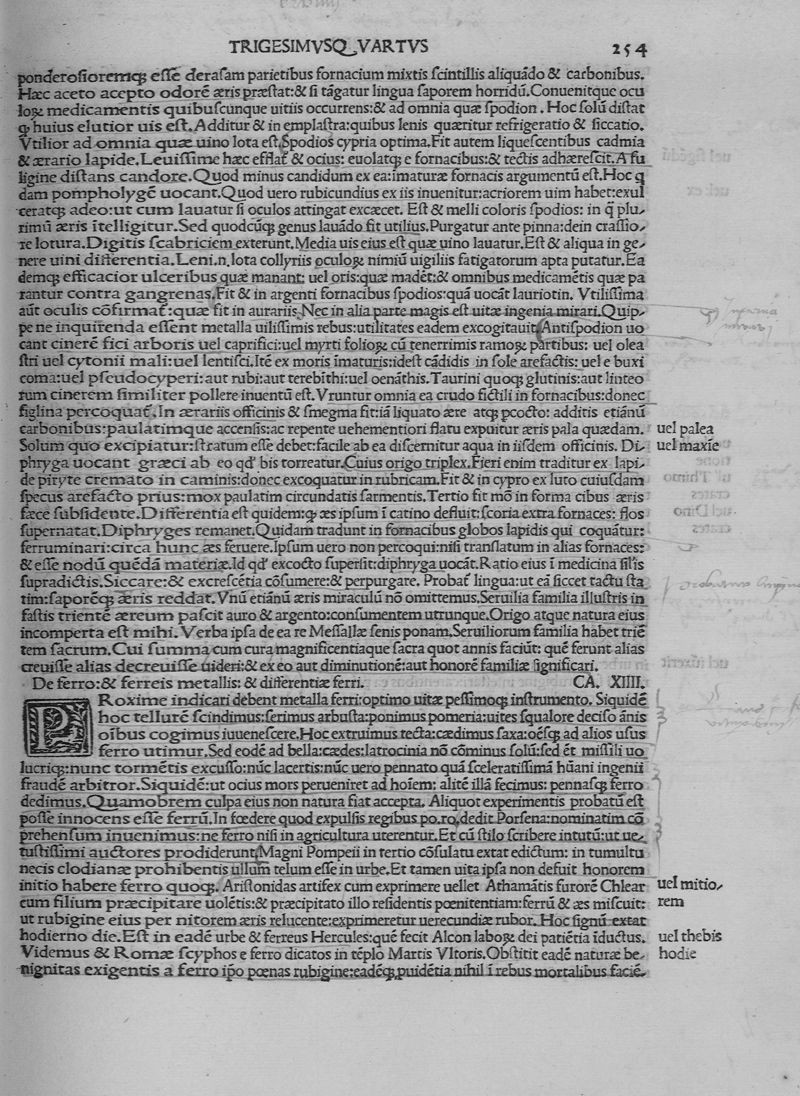 TRIGESIMVSQVARTVS 254
ponderosioremq; esse derasam parietibus fornacium mixtis scintillis aliquãdo & carbonibus.
Hæc aceto accepto odorẽ æris præstat:& si tãgatur lingua saporem horridũ.Conuenitque ocu
loꝝ medicamentis quibuscunque uitiis occurrens:& ad omnia quæ spodion . Hoc solũ distat
ꝙ huius elutior uis est.Additur & in emplastra:quibus lenis quæritur refrigeratio & siccatio.
Vtilior ad omnia quæ uino lota est.Spodios cypria optima.Fit autem liquescentibus cadmia
& ærario lapide.Leuissime hæc efflat̃ & ocius: euolatq; e fornacibus:& tectis adhærescit.A fu
ligine distans candore.Quod minus candidum ex ea:imaturæ fornacis argumentũ est.Hoc q
dam pompholygẽ uocant.Quod uero rubicundius ex iis inuenitur:acriorem uim habet:exul
ceratq; adeo:ut cum lauatur si oculos attingat excæcet. Est & melli coloris spodios: in q̃ plu-
rimũ æris ĩtelligitur.Sed quodcũq; genus lauãdo fit utilius.Purgatur ante pinna:dein crassio-
re lotura.Digitis scabriciem exterunt.Media uis eius est quæ uino lauatur.Est & aliqua in ge-
nere uini differentia.Leni.n.lota collyriis oculoꝝ nimiũ uigiliis fatigatorum apta putatur.Ea
demq; efficacior ulceribus quæ manant: uel oris:quæ madẽt:& omnibus medicamẽtis quæ pa
rantur contra gangrenas.Fit & in argenti fornacibus spodios:quã uocãt lauriotin. Vtilissima
aũt oculis cõfirmat̃:quæ fit in aurariis.Nec in alia parte magis est uitæ ingenia mirari.Quip-
pe ne inquirenda essent metalla uilissimis rebus:utilitates eadem excogitauit.Antispodion uo
cant cinerẽ fici arboris uel caprifici:uel myrti folioꝝ cũ tenerrimis ramoꝝ partibus: uel olea
stri uel cytonii mali:uel lentisci.Itẽ ex moris ĩmaturis:idest cãdidis in sole arefactis: uel e buxi
coma:uel pseudocyperi:aut rubi:aut terebĩthi:uel oenãthis.Taurini quoq; glutinis:aut linteo
rum cinerem similiter pollere inuentũ est.Vruntur omnia ea crudo fictili in fornacibus:donec
figlina percoquat̃.In ærariis officinis & smegma fit:iã liquato ære atq; pcocto: additis etiãnũ
carbonibus:paulatimque accensis:ac repente uehementiori flatu expuitur æris pala quædam. uel palea
Solum quo excipiatur:stratum esse debet:facile ab ea discernitur aqua in iisdem officinis. Di- uel maxie
phryga uocant græci ab eo qd' bis torreatur.Cuius origo triplex.Fieri enim traditur ex lapi-
de pirytе cremato in caminis:donec excoquatur in rubricam.Fit & in cypro ex luto cuiusdam
specus arefacto prius:mox paulatim circundatis sarmentis.Tertio fit mõ in forma cibus æris
fæce subsidente.Differentia est quidem:ꝙ æs ipsum ĩ catino defluit:scoria extra fornaces: flos
supernatat.Diphryges remanet.Quidam tradunt in fornacibus globos lapidis qui coquãtur:
ferruminari:circa hunc æs feruere.Ipsum uero non percoqui:nisi translatum in alias fornaces:
& esse nodũ quẽdã materiæ.Id qd' excocto supersit:diphryga uocãt.Ratio eius ĩ medicina sĩlis
supradictis.Siccare:& excrescẽtia cõsumere:& perpurgare. Probat̃ lingua:ut eã siccet tactu sta
tim:saporẽq; æris reddat.Vnũ etiãnũ æris miraculũ nõ omittemus.Seruilia familia illustris in
fastis trientẽ æreum pascit auro & argento:consumentem utrunque.Origo atque natura eius
incomperta est mihi.Verba ipsa de ea re Messallæ senis ponam.Seruiliorum familia habet triẽ
tem sacrum.Cui summa cum cura magnificentiaque sacra quot annis faciũt: quẽ ferunt alias
creuisse alias decreuisse uideri:& ex eo aut diminutionẽ:aut honorẽ familiæ significari.
De ferro:& ferreis metallis: & differentiæ ferri. CA. XIIII.
PRoxime indicari debent metalla ferri:optimo uitæ pessimoq; instrumento. Siquidẽ
hoc tellurẽ scindimus:serimus arbusta:ponimus pomeria:uites squalore deciso ãnis
oĩbus cogimus iuuenescere.Hoc extruimus tecta:cædimus saxa:oẽsq; ad alios usus
ferro utimur.Sed eodẽ ad bella:cædes:latrocinia nõ cõminus solũ:sed ẽt missili uo
lucriq;:nunc tormẽtis excusso:nũc lacertis:nũc uero pennato quã sceleratissimã hũani ingenii
fraudẽ arbitror.Siquidẽ:ut ocius mors perueniret ad hoĩem: alitẽ illã fecimus: pennasq; ferro
dedimus.Quamobrem culpa eius non natura fiat accepta. Aliquot experimentis probatũ est
posse innocens esse ferrũ.In fœdere quod expulsis regibus po.ro.dedit Porsena:nominatim cõ
prehensum inuenimus:ne ferro nisi in agricultura uterentur.Et cũ stilo scribere intutũ:ut ue-
tustissimi auctores prodiderunt.Magni Pompeii in tertio cõsulatu extat edictum: in tumultu
necis clodianæ prohibentis ullum telum esse in urbe.Et tamen uita ipsa non defuit honorem
initio habere ferro quoq;. Aristonidas artifex cum exprimere uellet Athamãtis furorẽ Chlear uel mitio-
cum filium præcipitare uolẽtis:& præcipitato illo residentis pœnitentiam:ferrũ & æs miscuit: rem
ut rubigine eius per nitorem æris relucente:exprimeretur uerecundiæ rubor. Hoc signũ extat
hodierno die.Est in eadẽ urbe & ferreus Hercules:quẽ fecit Alcon laboꝝ dei patiẽtia ĩductus. uel thebis
Videmus & Romæ scyphos e ferro dicatos in tẽplo Martis Vltoris.Obstitit eadẽ naturæ be- hodie
nignitas exigentis a ferro ip̃o pœnas rubigine:eadẽq; puidẽtia nihil ĩ rebus mortalibus faciẽ-